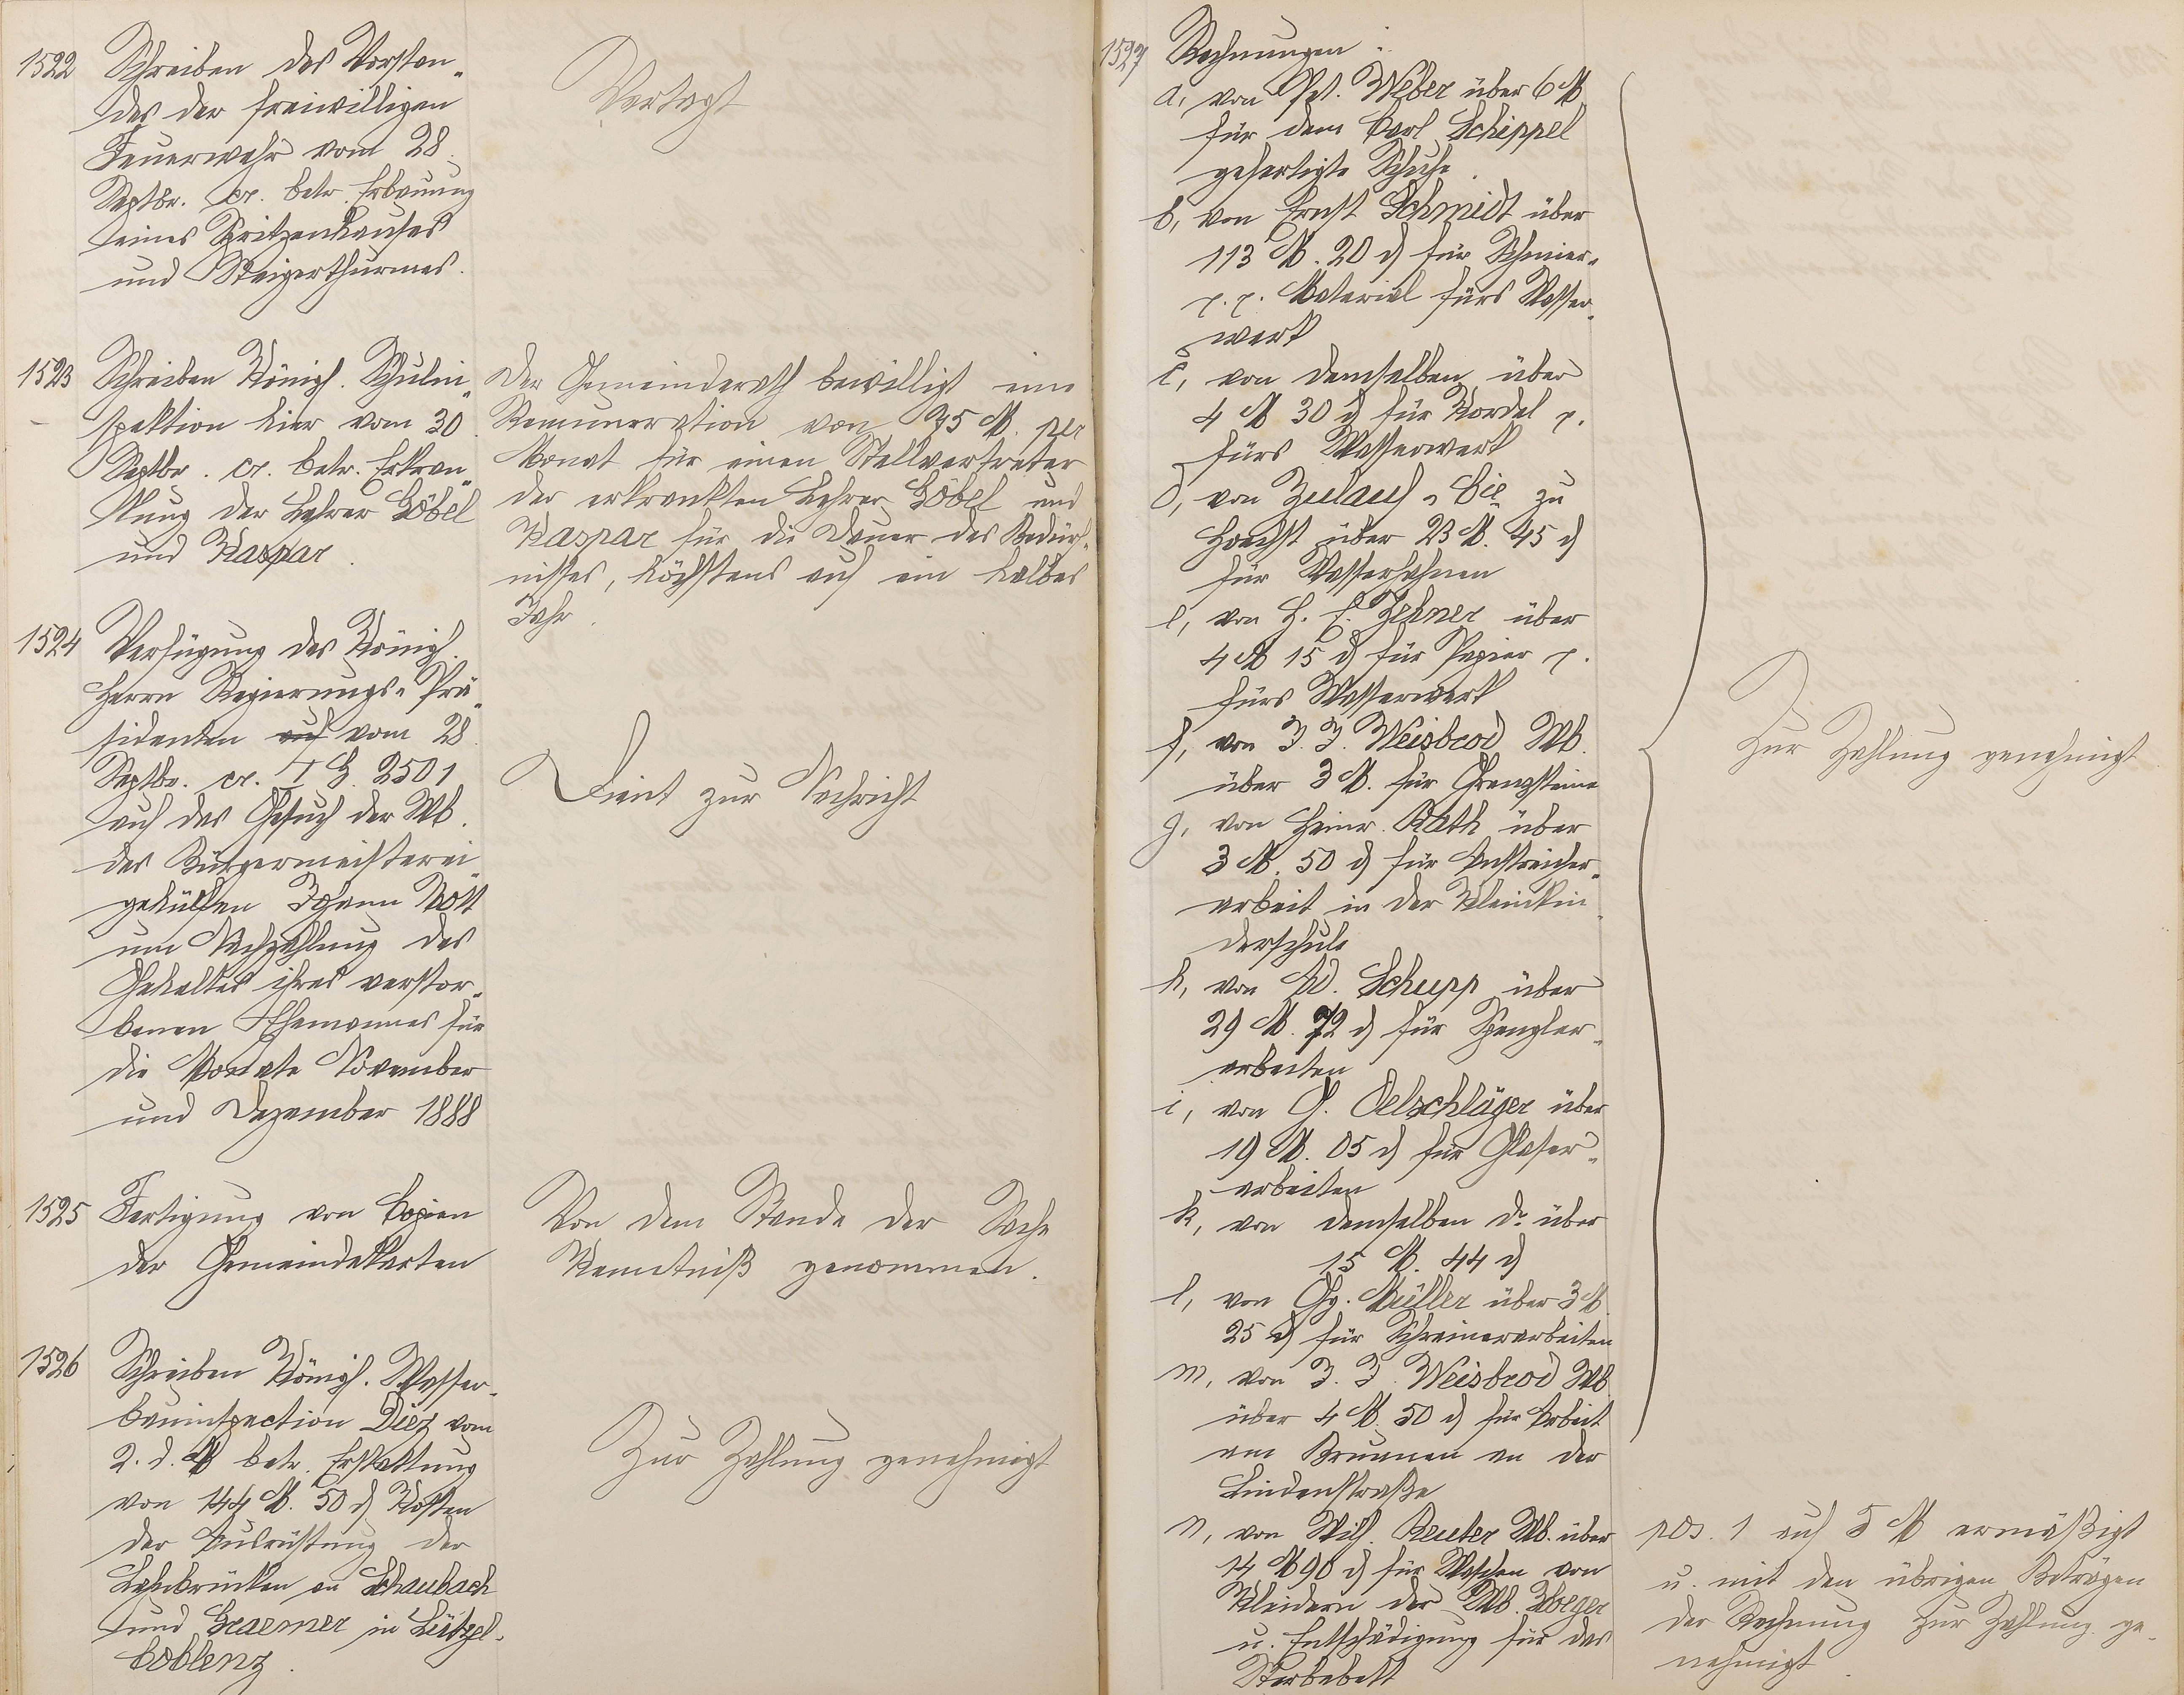 1522 Schreiben des Vorstan-
des der freiwilligen
Feuerwehr vom 28.
Septbr. cr. betr. Erbauung
eines Spritzenhauses
und Steigerthurmes.
Vertagt
1523 Schreiben Königl. Schulin-
spektion hier vom 30.
Septbr. cr. betr. Erkran-
kung der Lehrer Göbel
und Kaspar.
Der Gemeinderath bewilligt eine
Remuneration von 75 M. per
Monat für einen Stellvertreter
der erkrankten Lehrer Göbel und
Kaspar für die Dauer des Bedürf-
nisses, höchstens auf ein halbes
Jahr.
1524 Verfügung des Königl.
Herrn Regierungs-Prä-
sidenten auf vom 28.
Septbr. cr. I G. 2501
auf das Gesuch der Wb.
des Bürgermeisterei-
gehülfen Johann Nott
um Nachzahlung des
Gehaltes ihres verstor-
benen Ehemannes für
die Monate November
und Dezember 1888
Dient zur Nachricht
1525 Fertigung von Copien
der Gemeindekarten
Von dem Stande der Sache
Kenntniß genommen.
1526 Schreiben Königl. Wasser-
bauinspection Diez vom
2. d. M betr. Erstattung
von 144 M. 50 d Kosten
der Ausrüstung der
Lahnbrücken an Schaubach
und Graemer in Lützel-
Coblenz.
Zur Zahlung genehmigt
1527 Rechnungen:
a, von Pet. Weber über 6 M
für dem Carl Schippel
gefertigte Schuhe.
b, von Ernst Schmidt über
113 M. 20 d für Schmier-
p.p. Material fürs Wasser-
werk
c, von demselben über
4 M 30 d für Kordel p.
fürs Wasserwerk
d, von Zulauf & Cie zu
Hoechst über 23 M. 45 d
für Wasserhahnen
e, von H. C. Zehner über
4 M 15 d für Papier p.
fürs Wasserwerk
f, von J. J. Weisbrod Wb.
über 3 M. für Grenzsteine
g, von Heinr. Rath über
3 M. 50 d für Anstreicher-
arbeit in der Kleinkin-
derschule
h, von W. Schupp über
29 M. 72 d für Spengler-
arbeiten
i, von G. Oelschläger über
19 M. 05 d für Glaser-
arbeiten
k, von demselben do über
15 M. 44 d
l, von Gg. Müller über 3 M.
25 d für Schreinerarbeiten
m, von J. J. Weisbrod Wb
über 4 M. 50 d für Arbeit
am Brunnen an der
Lindenstraße
Zur Zahlung genehmigt
n, von Wilh. Reuter Wb. über
14 M 90 d für Waschen von
Kleidern der Wb.
u. Entschädigung für das
Sterbebett
pos. 1 auf 5 M ermäßigt
u. mit den übrigen Beträgen
der Rechnung zur Zahlung ge-
nehmigt.